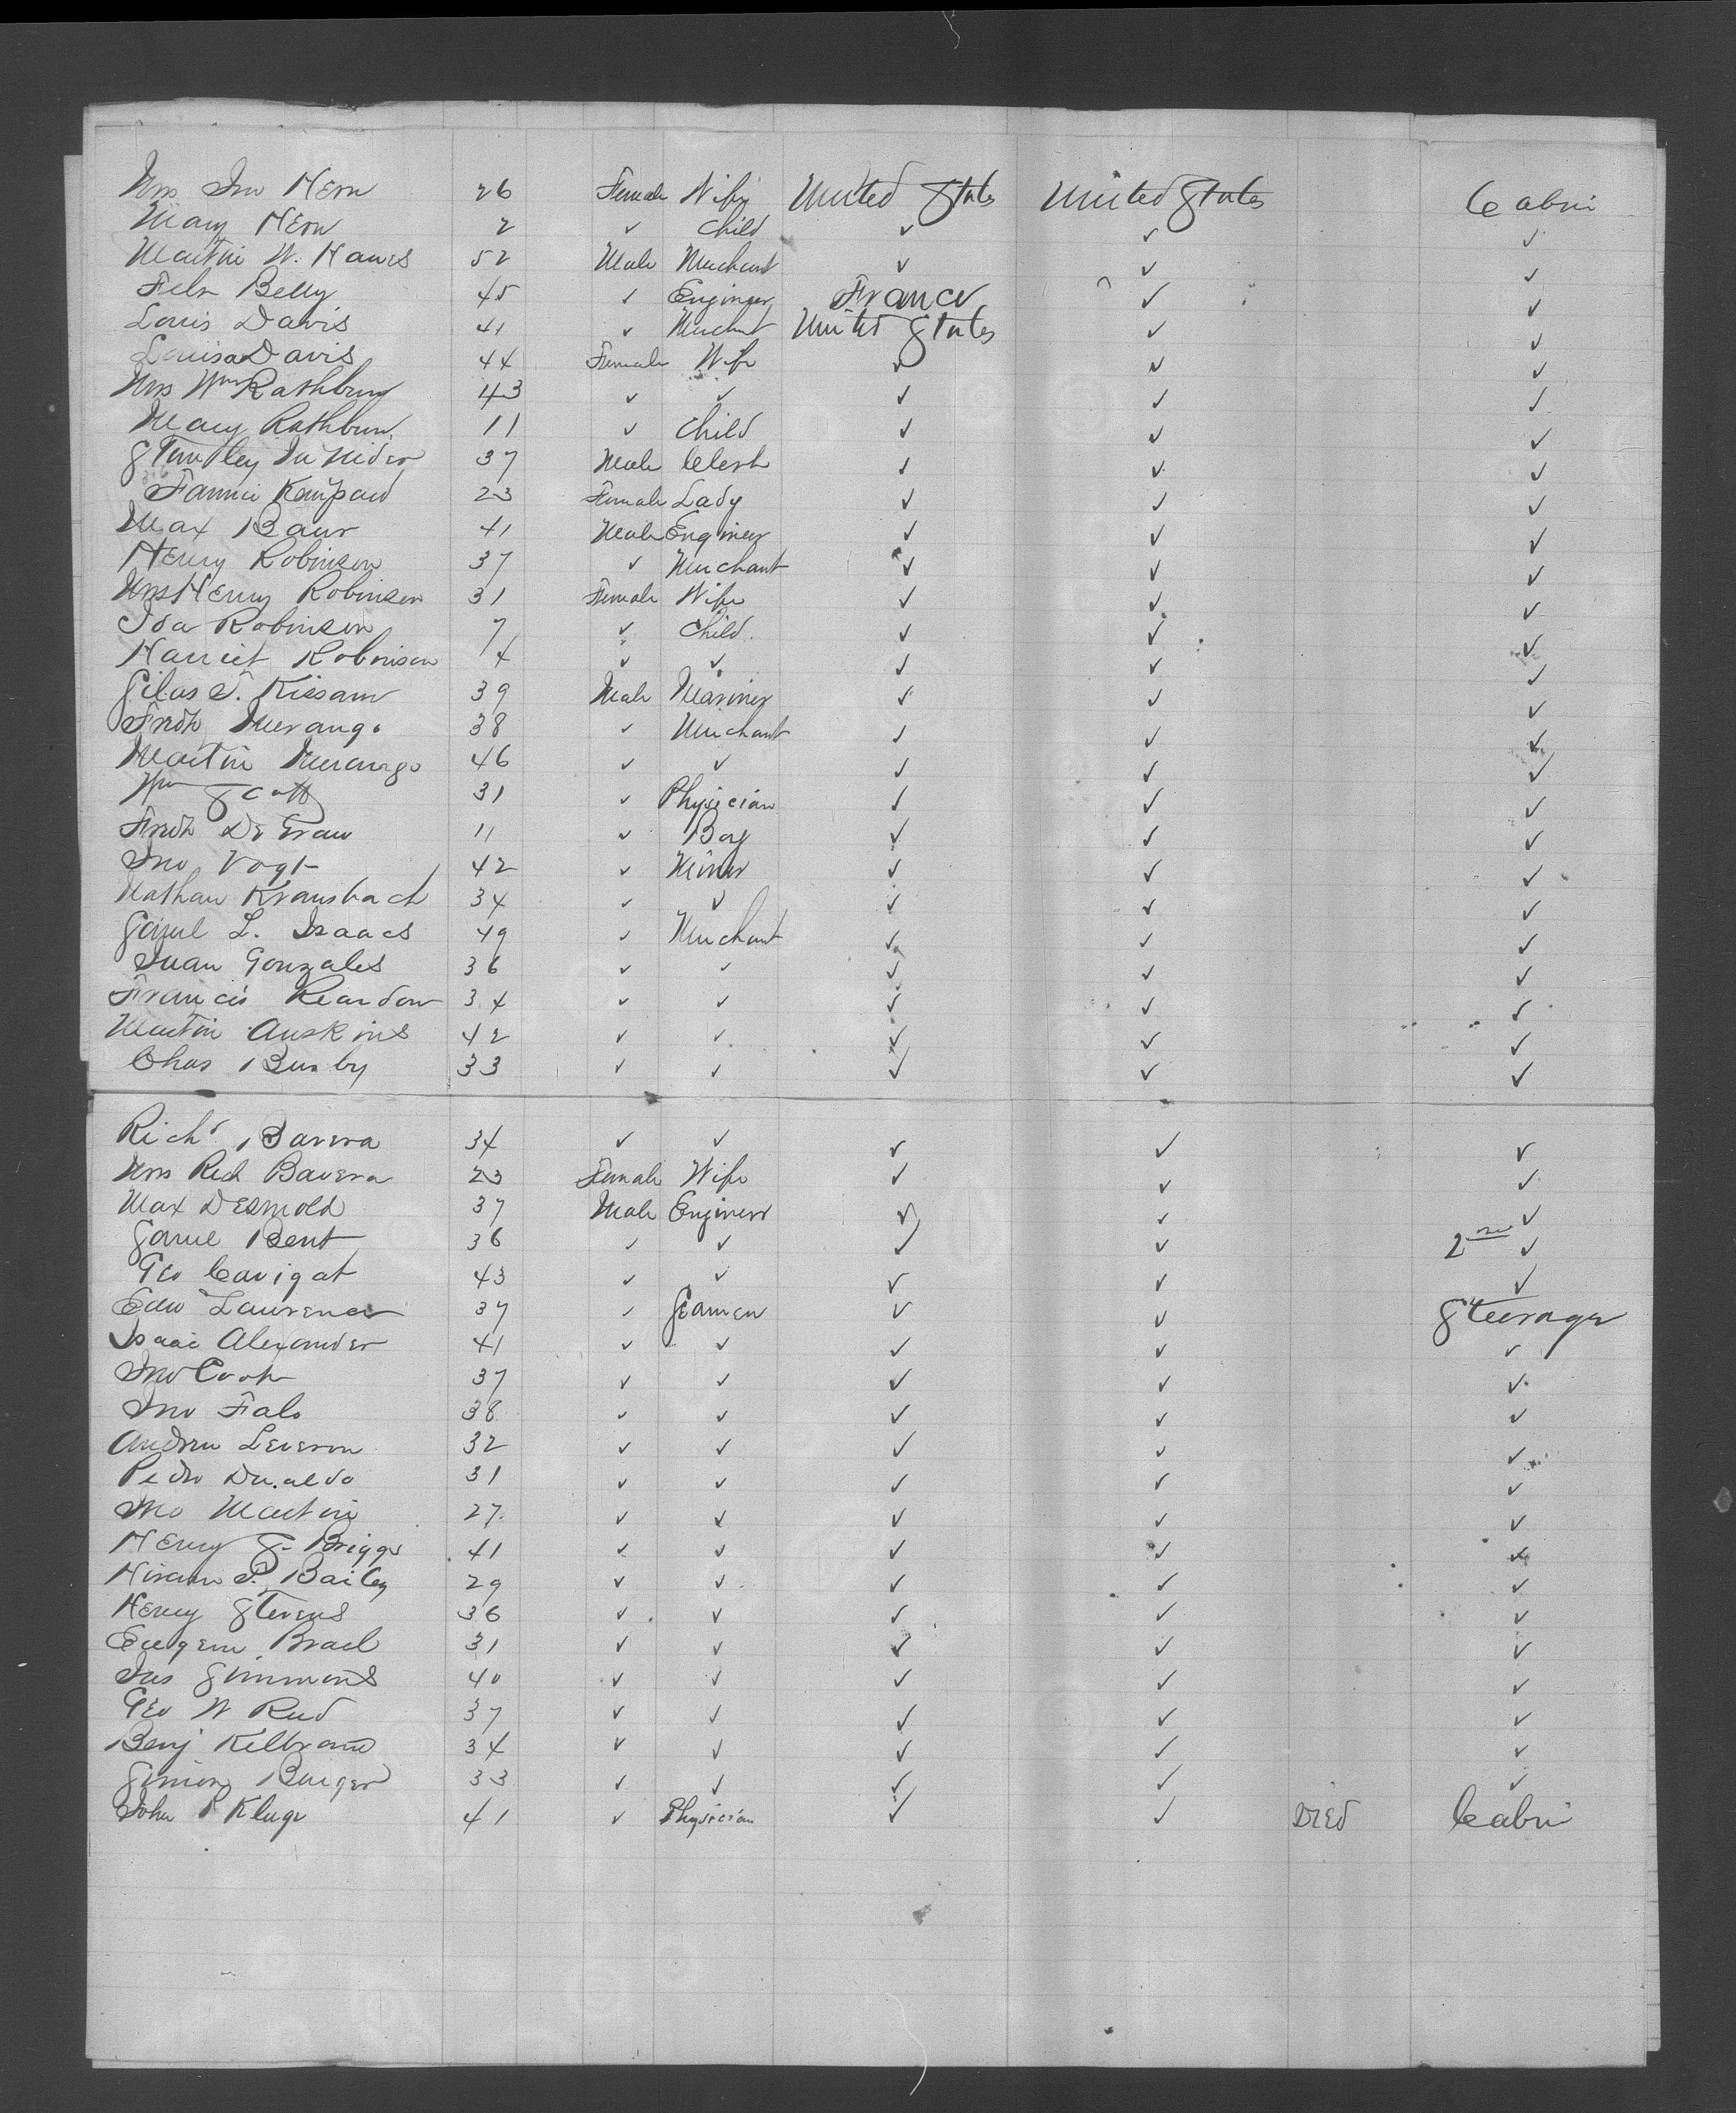 Mrs Jno Hern 26 Female Wife United States United States Cabin
Mary Hern 2 ✓ Child ✓ ✓ ✓
Martin W. Hawes 52 Male Merchant ✓ ✓ ✓
Felx Belly 45 ✓ Engineer France ✓ ✓
Louis Davis 41 ✓ Merchant United States ✓ ✓
Louisa Davis 44 Female Wife ✓ ✓ ✓
Mrs Wm Rathbun 43 ✓ ✓ ✓ ✓ ✓
Mary Rathbun 11 ✓ Child ✓ ✓ ✓
Stanley 37 Male Clerk ✓ ✓ ✓
Fannie 23 Female Lady ✓ ✓ ✓
Max Baur 41 Male Engineer ✓ ✓ ✓
Henry Robinson 37 ✓ Merchant ✓ ✓ ✓
Mrs Henry Robinson 31 Female Wife ✓ ✓ ✓
Ida Robinson 7 ✓ Child ✓ ✓ ✓
Harriet Robinson 4 ✓ ✓ ✓ ✓ ✓
Silas S. Kissam 39 Male Mariner ✓ ✓ ✓
Fredk Murango 38 ✓ Merchant ✓ ✓ ✓
Martin Murango 46 ✓ ✓ ✓ ✓ ✓
Wm Scott 31 ✓ Physician ✓ ✓ ✓
Fredk De Graw 11 ✓ Boy ✓ ✓ ✓
Jno Vogt 42 ✓ Miner ✓ ✓ ✓
Nathan Kransbach 34 ✓ ✓ ✓ ✓ ✓
Saml L. Isaacs 49 ✓ Merchant ✓ ✓ ✓
Juan Gonzales 36 ✓ ✓ ✓ ✓ ✓
Francis Reardon 34 ✓ ✓ ✓ ✓ ✓
Martin Auskins 42 ✓ ✓ ✓ ✓ ✓
Chas Busby 33 ✓ ✓ ✓ ✓ ✓
Richd Bavera 34 ✓ ✓ ✓ ✓ ✓
Mrs Rich Bavera 23 Female Wife ✓ ✓ ✓
Max Desmold 37 Male Engineer ✓ ✓ ✓
Saml Bent 36 ✓ ✓ ✓ ✓ 2nd ✓
Geo Cavigat 43 ✓ ✓ ✓ ✓ ✓
Edw Laurence 37 ✓ Seamen ✓ ✓ Steerage
Isaac Alexander 41 ✓ ✓ ✓ ✓ ✓
Jno Cook 37 ✓ ✓ ✓ ✓ ✓
Jno Fals 38 ✓ ✓ ✓ ✓ ✓
Andrew Leveron 32 ✓ ✓ ✓ ✓ ✓
Pedro 31 ✓ ✓ ✓ ✓ ✓
Jno Martin 27 ✓ ✓ ✓ ✓ ✓
Henry S. Briggs 41 ✓ ✓ ✓ ✓ ✓
Hiram P. Bailey 29 ✓ ✓ ✓ ✓ ✓
Henry Stevens 36 ✓ ✓ ✓ ✓ ✓
Eugene Brael 31 ✓ ✓ ✓ ✓ ✓
Jas Simmons 40 ✓ ✓ ✓ ✓ ✓
Geo W Reed 37 ✓ ✓ ✓ ✓ ✓
Benj Kelbrand 34 ✓ ✓ ✓ ✓ ✓
Simon Burger 33 ✓ ✓ ✓ ✓ ✓
John P Kluge 41 ✓ Physician ✓ ✓ Died Cabin